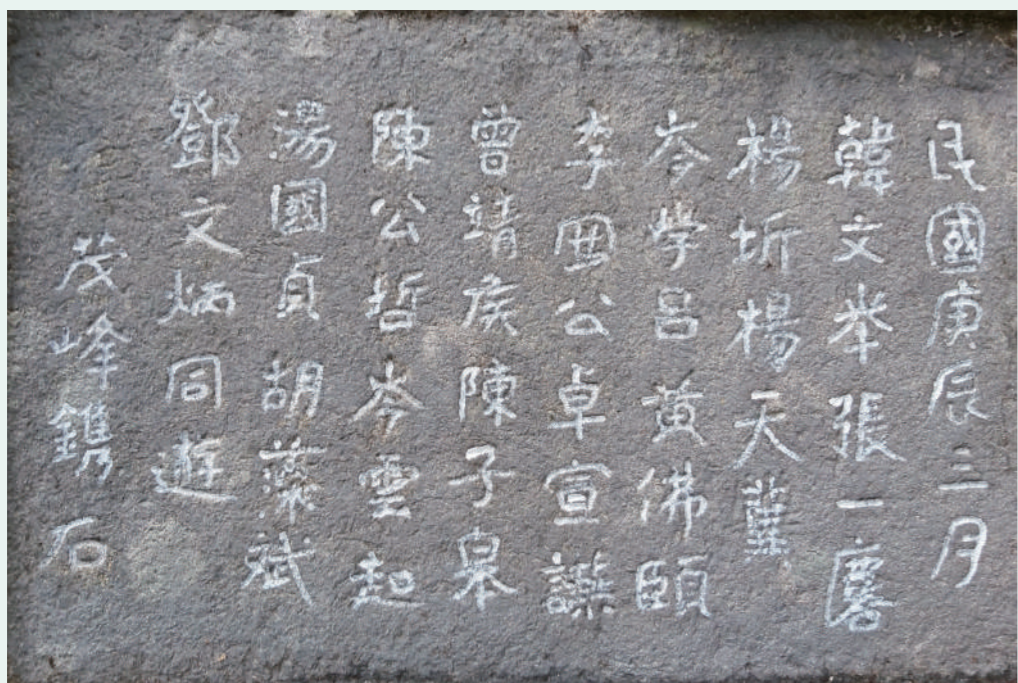 民國庚辰三月
韓文举張一麐
楊圻楊天驥
岑學呂黃佛頤
李公卓宣
曾靖侯陳子皋
陳公哲岑雲起
湯國貞胡藻斌
鄧文炳同遊
茂峰鐫石